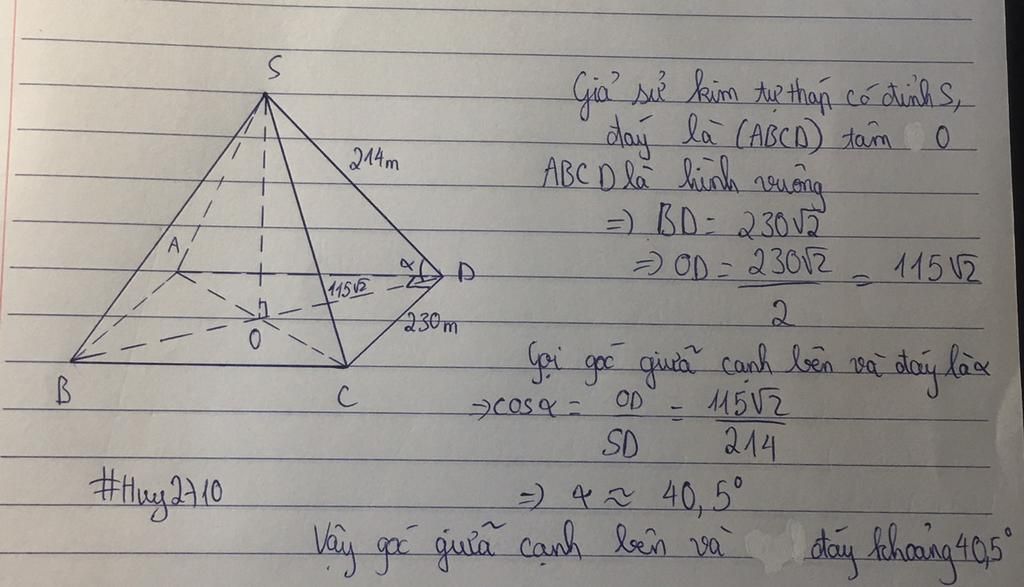 S
214m
A
α
D
115√2
230m
O
B
C
Giả sử kim tự tháp có đỉnh S,
đáy là (ABCD) tâm O
ABCD là hình vuông
=> BD = 230√2
=> OD = 230√2 / 2 = 115√2
Gọi góc giữa cạnh bên và đáy là α
=> cosα = OD / SD = 115√2 / 214
#Huy2710
=> α ≈ 40,5°
Vậy góc giữa cạnh bên và đáy khoảng 40,5°